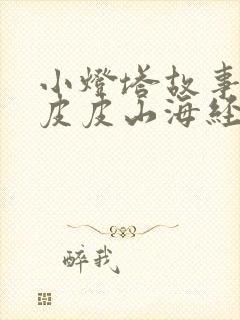 小燈塔故事
皮皮山海經
醉我